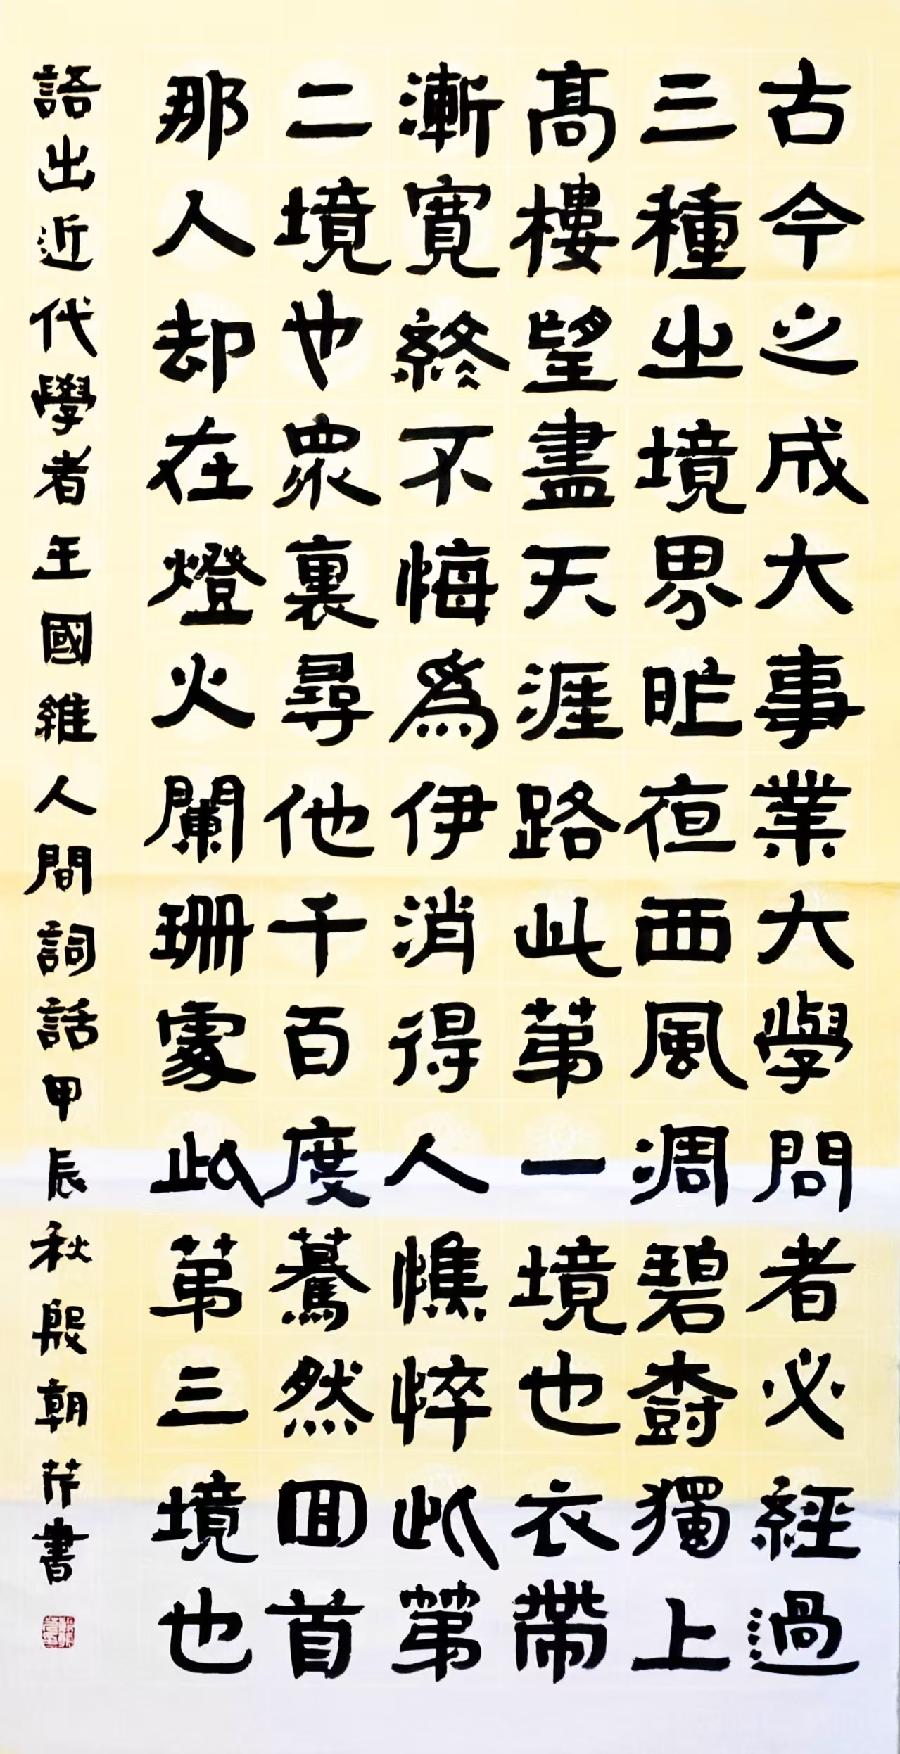 古今之成大事業大學問者必經過
三種之境界昨夜西風凋碧樹獨上
高樓望盡天涯路此第一境也衣帶
漸寬終不悔為伊消得人憔悴此第
二境也眾裏尋他千百度驀然回首
那人却在燈火闌珊處此第三境也
語出近代學者王國維人間詞話甲辰秋殷朝芹書